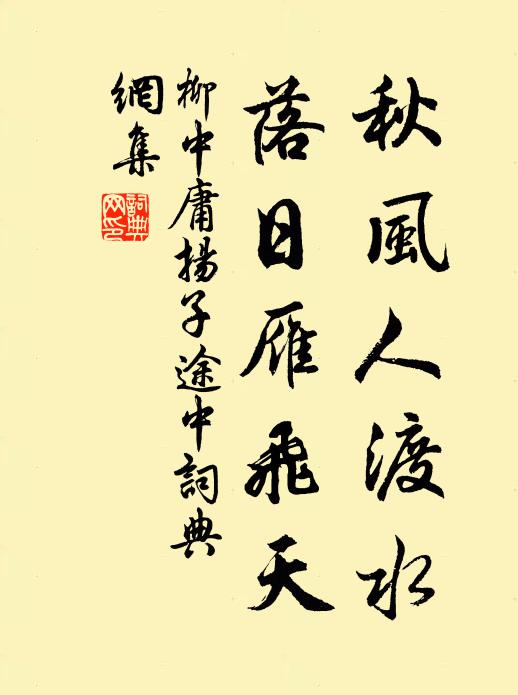 秋風人渡水
落日雁飛天
柳中庸揚子途中詞典
網集
詞典
网印